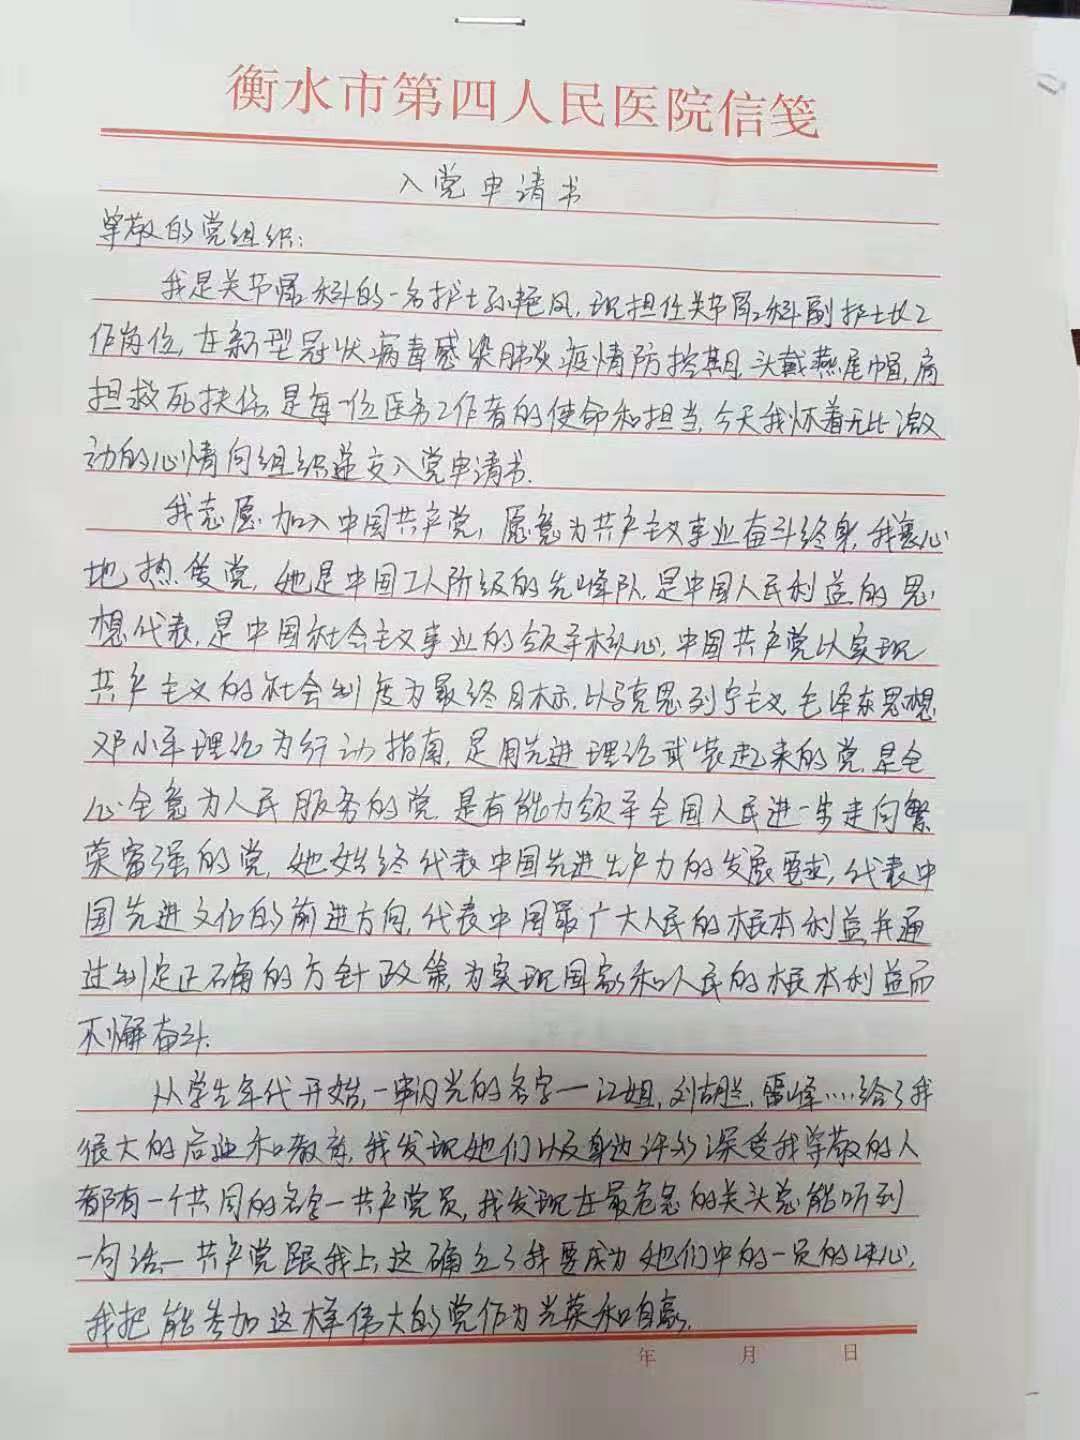 衡水市第四人民医院信笺
入党申请书
尊敬的党组织:
我是关节骨科的一名护士孙艳凤,现担任关节骨科副护士长工
作岗位,在新型冠状病毒感染肺炎疫情防控期,头戴燕尾帽,肩
担救死扶伤,是每一位医务工作者的使命和担当,今天我怀着无比激
动的心情向组织递交入党申请书.
我志愿加入中国共产党,愿意为共产主义事业奋斗终身,我衷心
地热爱党,她是中国工人阶级的先峰队,是中国人民利益的思
想代表,是中国社会主义事业的领导核心,中国共产党以实现
共产主义的社会制度为最终目标,以马克思列宁主义毛泽东思想
邓小平理论为行动指南,是用先进理论武装起来的党,是全
心全意为人民服务的党,是有能力领导全国人民进一步走向繁
荣富强的党,她始终代表中国先进生产力的发展要求,代表中
国先进文化的前进方向,代表中国最广大人民的根本利益,并通
过制定正确的方针政策,为实现国家和人民的根本利益而
不懈奋斗.
从学生年代开始,一串闪光的名字—江姐,刘胡兰,雷峰……给了我
很大的启迪和教育,我发现她们以及身边许多深受我尊敬的人
都有一个共同的名字—共产党员,我发现在最危急的关头总能听到
一句话—共产党跟我上,这确立了我要成为她们中的一员的决心,
我把能参加这样伟大的党作为光荣和自豪.
年 月 日